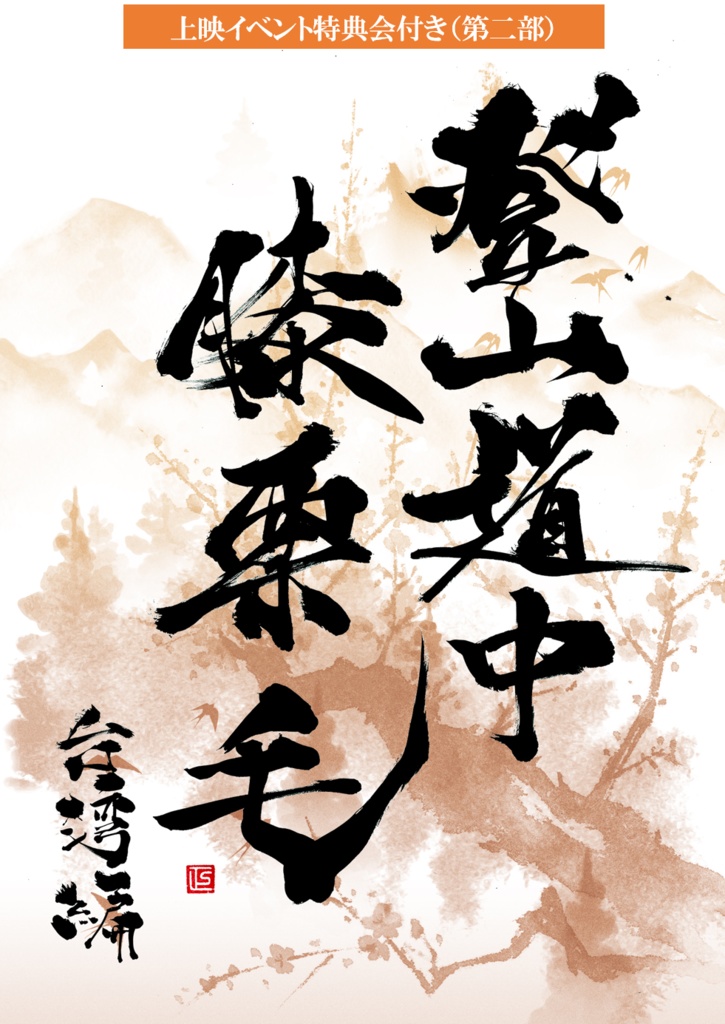 上映イベント特典会付き（第二部）
登山道中
膝栗毛
台湾編